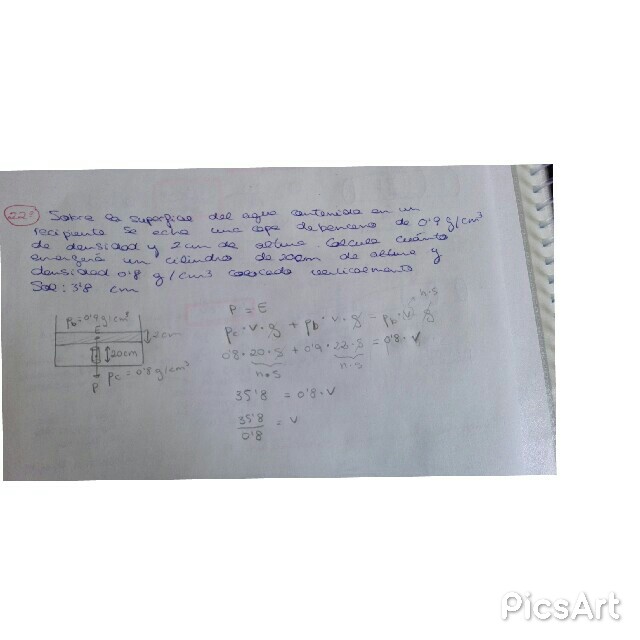 22º) Sobre la superficie del agua contenida en un
recipiente se echa una capa de benceno de 0'9 g/cm³
de densidad y 2 cm de altura. Calcula cuánto
emergerá un cilindro de 20cm de altura y
densidad 0'8 g/cm3 colocado verticalmente
Sol: 3'8 cm
ρb=0'9g/cm³
E
2cm
20cm
ρc=0'8g/cm³
P
P = E
h·s
ρc·v·g + ρb·v·g = ρb·v·g
0'8·20·s + 0'9·
= 0'8·v
h·s
h·s
35'8 = 0'8·v
35'8
0'8
= v
PicsArt